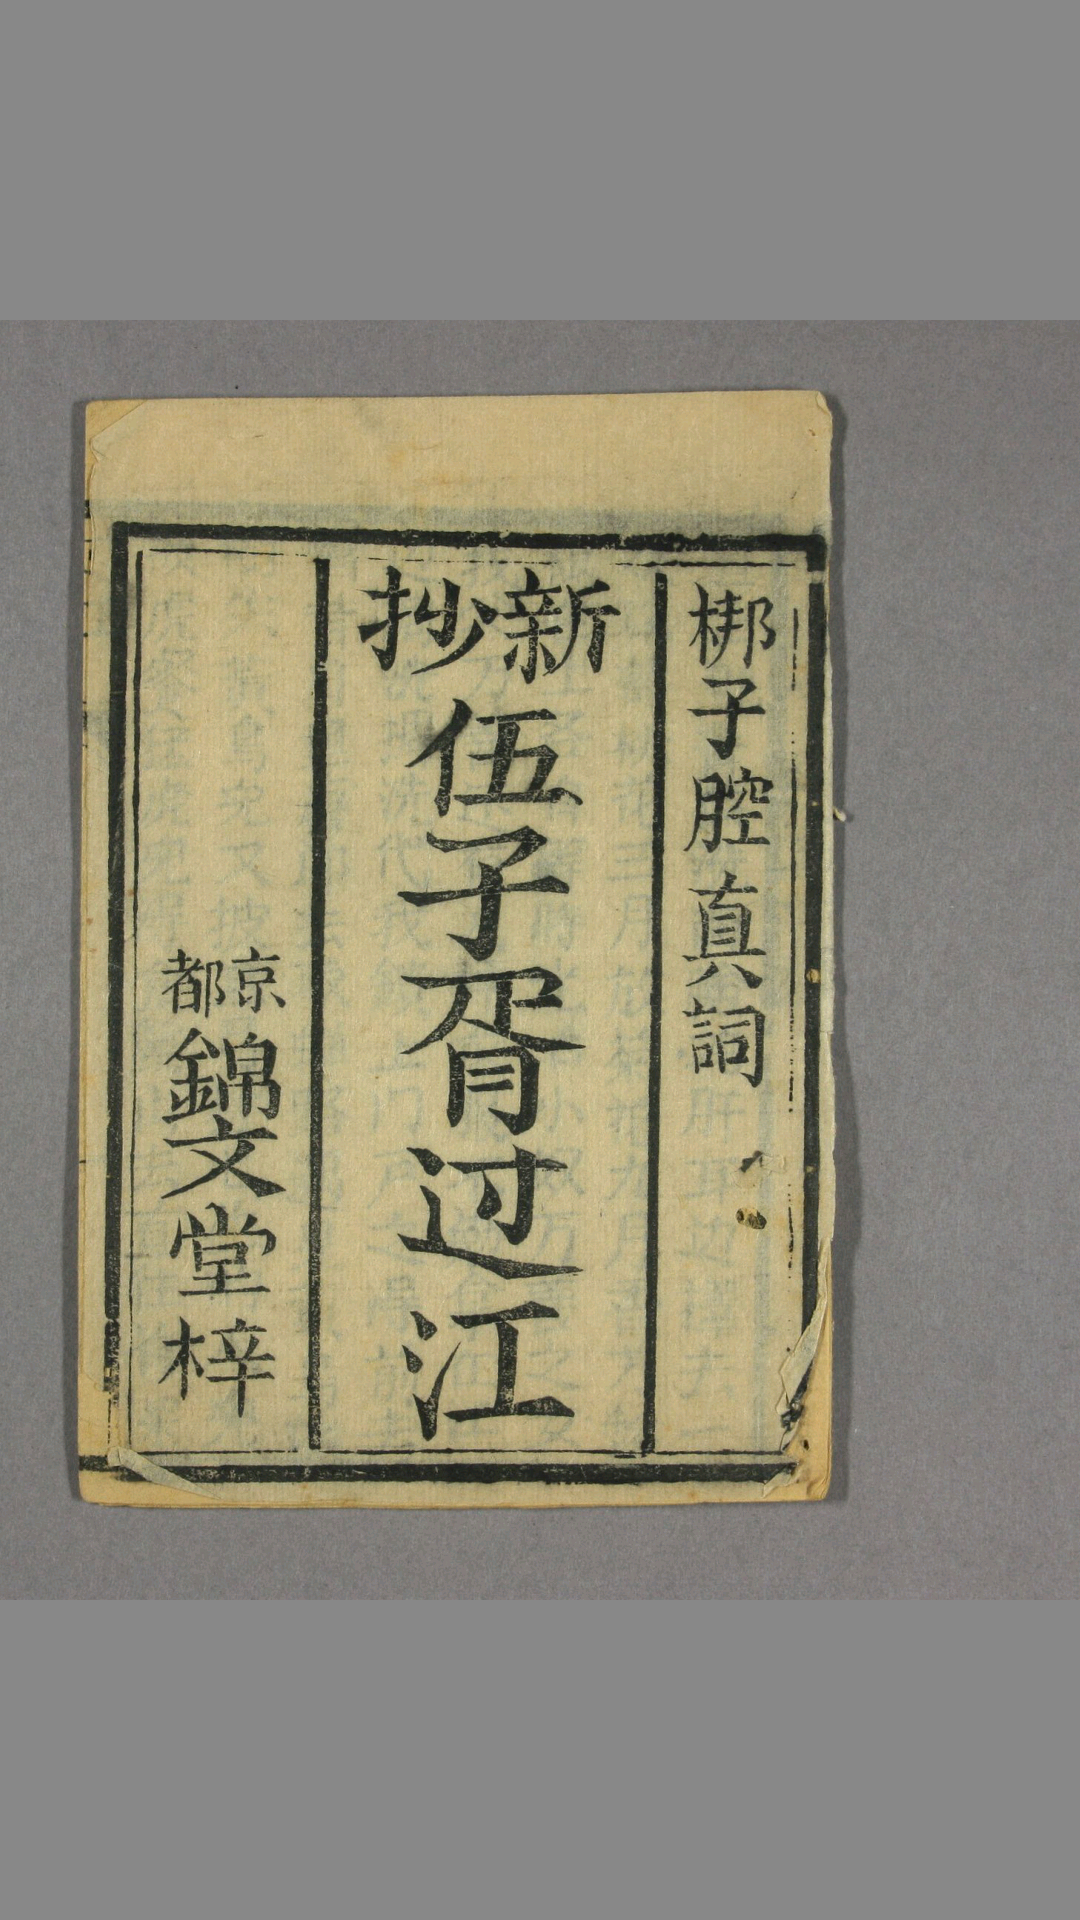 梆子腔真詞
新抄
伍子胥过江
京都
錦文堂梓